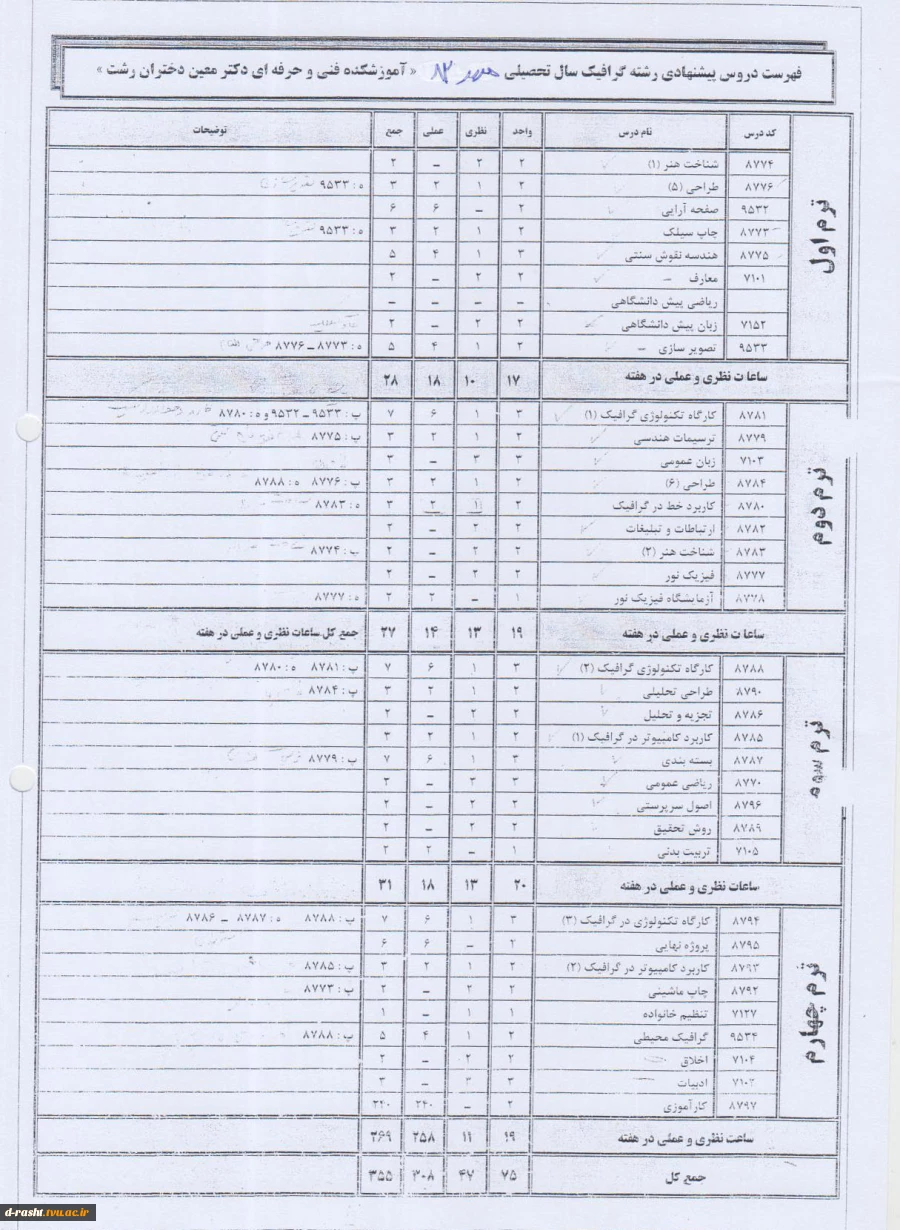 فهرست دروس پیشنهادی رشته گرافیک سال تحصیلی ۸۲ « آموزشکده فنی و حرفه ای دکتر معین دختران رشت »
کد درس نام درس واحد نظری عملی جمع توضیحات
ترم اول
۸۷۷۴ شناخت هنر (۱) ۲ ۲ _ ۲
۸۷۷۶ طراحی (۵) ۲ ۱ ۲ ۳ ه : ۹۵۳۳
۹۵۳۲ صفحه آرایی ۲ _ ۶ ۶
۸۷۷۳ چاپ سیلک ۲ ۱ ۲ ۳ ه : ۹۵۳۳
۸۷۷۵ هندسه نقوش سنتی ۳ ۱ ۴ ۵
۷۱۰۱ معارف ۲ ۲ _ ۲
ریاضی پیش دانشگاهی _ _ _ _
۷۱۵۲ زبان پیش دانشگاهی ۲ ۲ _ ۲
۹۵۳۳ تصویر سازی ۲ ۱ ۴ ۵ ه : ۸۷۷۳ _ ۸۷۷۶
ساعات نظری و عملی در هفته ۱۷ ۱۰ ۱۸ ۲۸
ترم دوم
۸۷۸۱ کارگاه تکنولوژی گرافیک (۱) ۳ ۱ ۶ ۷ ب : ۹۵۳۳ _ ۹۵۳۲ و ه : ۸۷۸۰
۸۷۷۹ ترسیمات هندسی ۲ ۱ ۲ ۳ ب : ۸۷۷۵
۷۱۰۳ زبان عمومی ۳ ۳ _ ۳
۸۷۸۴ طراحی (۶) ۲ ۱ ۲ ۳ ب : ۸۷۷۶ ه : ۸۷۸۸
۸۷۸۰ کاربرد خط در گرافیک ۲ ۱ ۲ ۳ ه : ۸۷۸۳
۸۷۸۲ ارتباطات و تبلیغات ۲ ۲ _ ۲
۸۷۸۳ شناخت هنر (۲) ۲ ۲ _ ۲ ب : ۸۷۷۴
۸۷۷۷ فیزیک نور ۲ ۲ _ ۲
۸۷۷۸ آزمایشگاه فیزیک نور ۱ _ ۲ ۲ ه : ۸۷۷۷
ساعات نظری و عملی در هفته ۱۹ ۱۳ ۱۴ ۲۷ جمع کل ساعات نظری و عملی در هفته
ترم سوم
۸۷۸۸ کارگاه تکنولوژی گرافیک (۲) ۳ ۱ ۶ ۷ ب : ۸۷۸۱ ه : ۸۷۸۰
۸۷۹۰ طراحی تحلیلی ۲ ۱ ۲ ۳ ب : ۸۷۸۴
۸۷۸۶ تجزیه و تحلیل ۲ ۲ _ ۲
۸۷۸۵ کاربرد کامپیوتر در گرافیک (۱) ۲ ۱ ۲ ۳
۸۷۸۷ بسته بندی ۳ ۱ ۶ ۷ ب : ۸۷۷۹
۸۷۷۰ ریاضی عمومی ۳ ۳ _ ۳
۸۷۹۶ اصول سرپرستی ۲ ۲ _ ۲
۸۷۸۹ روش تحقیق ۲ ۲ _ ۲
۷۱۰۵ تربیت بدنی ۱ _ ۲ ۲
ساعات نظری و عملی در هفته ۲۰ ۱۳ ۱۸ ۳۱
ترم چهارم
۸۷۹۴ کارگاه تکنولوژی در گرافیک (۳) ۳ ۱ ۶ ۷ ب : ۸۷۸۸ ه : ۸۷۸۷ _ ۸۷۸۶
۸۷۹۵ پروژه نهایی ۲ _ ۶ ۶
۸۷۹۳ کاربرد کامپیوتر در گرافیک (۲) ۲ ۱ ۲ ۳ ب : ۸۷۸۵
۸۷۹۲ چاپ ماشینی ۲ ۲ _ ۲ ب : ۸۷۷۳
۷۱۲۷ تنظیم خانواده ۱ ۱ _ ۱
۹۵۳۴ گرافیک محیطی ۲ ۱ ۴ ۵ ب : ۸۷۸۸
۷۱۰۴ اخلاق ۲ ۲ _ ۲
۷۱۰۲ ادبیات ۳ ۳ _ ۳
۸۷۹۷ کارآموزی ۲ _ ۲۴۰ ۲۴۰
ساعت نظری و عملی در هفته ۱۹ ۱۱ ۲۵۸ ۲۶۹
جمع کل ۷۵ ۴۷ ۳۰۸ ۳۵۵
d-rasht.tvu.ac.ir